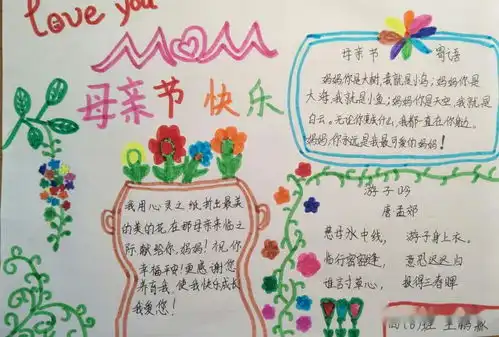 Love you
MOM
母亲节快乐
母亲节 寄语
妈妈你是大树,我就是小鸟;妈妈你是
大海,我就是小鱼;妈妈你是天空,我就是
白云。无论你变什么,我都一直在你身边。
妈妈,你永远是我最可爱的妈妈!
我用心灵之纸折出最美
的美的花,在那母亲来临之
际,献给你,妈妈!祝你
幸福平安!更感谢您
养育我,使我快乐成长
我爱您!
游子吟
唐孟郊
慈母手中线, 游子身上衣。
临行密密缝, 意恐迟迟归
谁言寸草心, 报得三春晖
班 王鹏